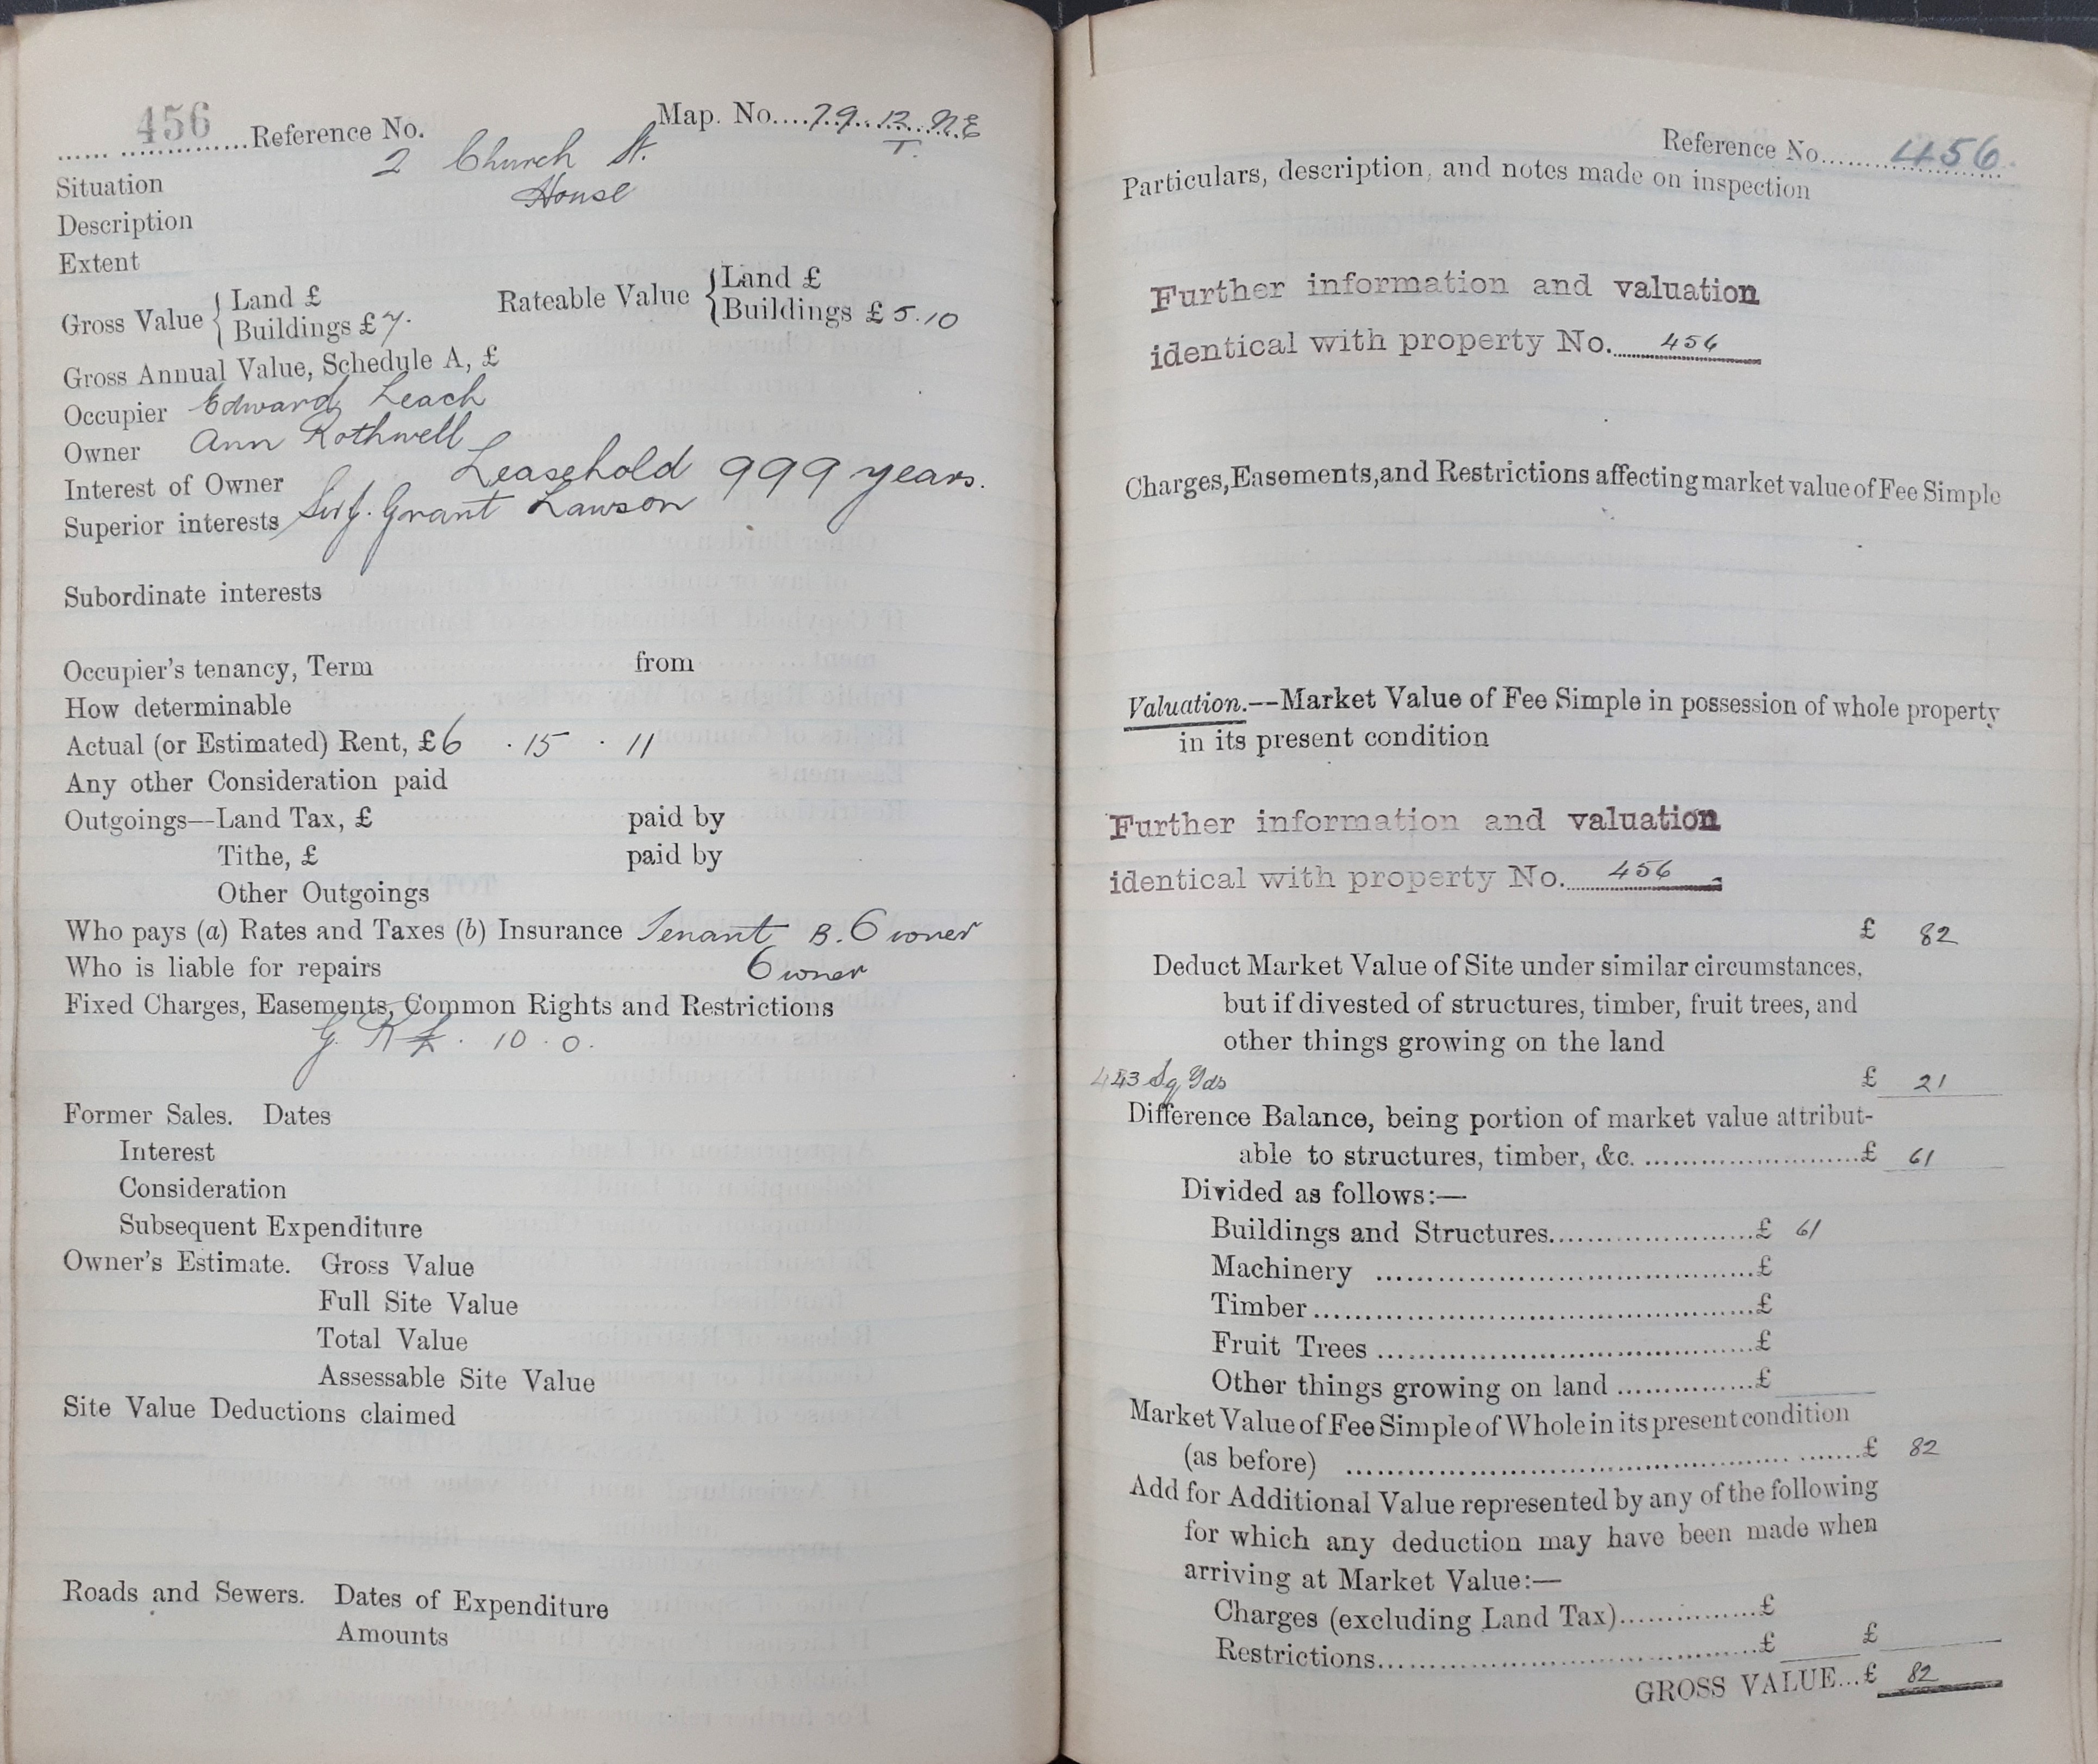 456 Reference No. Map. No....79. 12. N.E
T.
Situation 2 Church St.
Description House
Extent
Gross Value { Land £
Buildings £ 7. Rateable Value { Land £
Buildings £ 5.10
Gross Annual Value, Schedule A, £
Occupier Edward Leach
Owner Ann Rothwell
Interest of Owner Leasehold 999 years.
Superior interests Sir J. Grant Lawson
Subordinate interests
Occupier's tenancy, Term from
How determinable
Actual (or Estimated) Rent, £6 . 15 . 11
Any other Consideration paid
Outgoings—Land Tax, £ paid by
Tithe, £ paid by
Other Outgoings
Who pays (a) Rates and Taxes (b) Insurance Tenant B. Owner
Who is liable for repairs Owner
Fixed Charges, Easements, Common Rights and Restrictions
G. R £ . 10 . 0.
Former Sales. Dates
Interest
Consideration
Subsequent Expenditure
Owner's Estimate. Gross Value
Full Site Value
Total Value
Assessable Site Value
Site Value Deductions claimed
Roads and Sewers. Dates of Expenditure
Amounts
Reference No........456
Particulars, description, and notes made on inspection
Further information and valuation
identical with property No. 456
Charges, Easements, and Restrictions affecting market value of Fee Simple
Valuation.—Market Value of Fee Simple in possession of whole property
in its present condition
Further information and valuation
identical with property No. 456
£ 82
Deduct Market Value of Site under similar circumstances,
but if divested of structures, timber, fruit trees, and
other things growing on the land
443 Sq Yds £ 21
Difference Balance, being portion of market value attribut-
able to structures, timber, &c. ........................£ 61
Divided as follows:—
Buildings and Structures......................£ 61
Machinery ........................................£
Timber...........................................£
Fruit Trees .....................................£
Other things growing on land ...............£
Market Value of Fee Simple of Whole in its present condition
(as before) .......................................................£ 82
Add for Additional Value represented by any of the following
for which any deduction may have been made when
arriving at Market Value:—
Charges (excluding Land Tax)...............£
Restrictions.......................................£ £
GROSS VALUE...£ 82